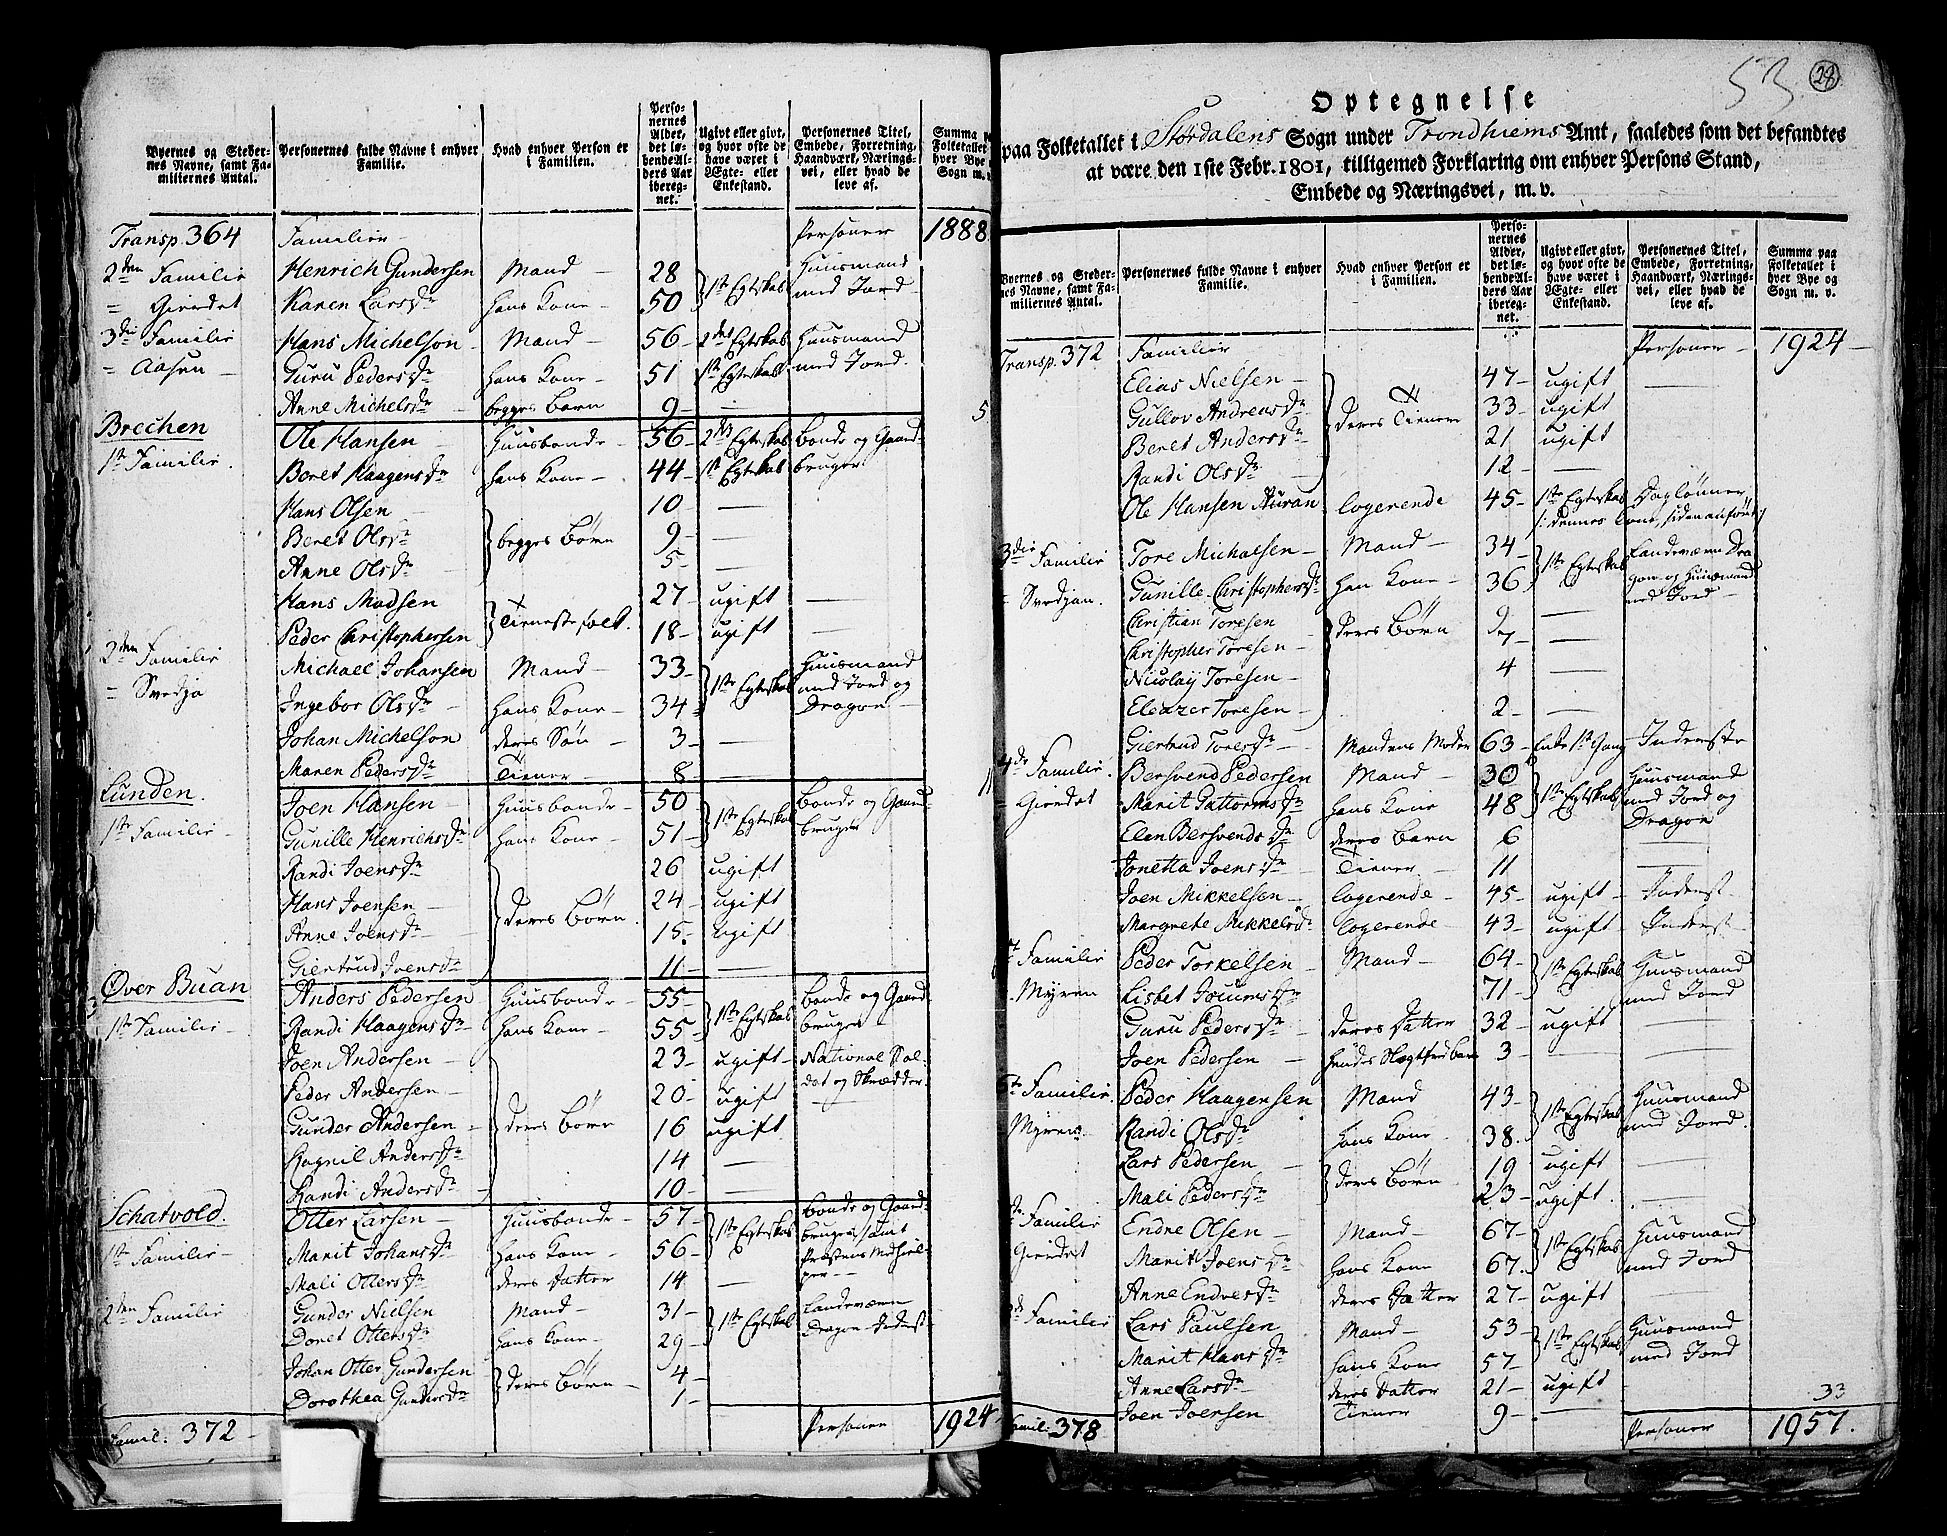 Byernes og Steder-
nes Navne, samt Fa-
miliernes Antal.
Personernes fulde Navne i enhver
Familie.
Hvad enhver Person er
i Familien.
Perso-
nernes
Alder,
det lø-
bende Al-
ders Aar
ibereg-
net.
Ugivt eller givt,
og hvor ofte de
have været i
Ægte- eller
Enkestand.
Personernes Titel,
Embede, Forretning,
Haandværk, Nærings-
vei, eller hvad de
leve af.
Summa pa
Folketallet
hver Bye og
Sogn m. v.
Transp. 364 Familier Personer 1888
2den Familie Henrich Gundersen Mand 28 1ste Egteskab Huusmand
Giendet Karen Larsdr hans Kone 50 med Jord
3die Familie Hans Michelson Mand 56 2det Egteskab Huusmand
Aasen Guru Pedersdr hans Kone 51 1ste Egteskab med Jord.
Anne Michelsdr begges Barn 9 5
Brechen Ole Hansen Huusbonde 56 2det Egteskab Bonde og Gaard-
1ste Familie Beret Haagensdr hans Kone 44 1te Egteskab bruger
Hans Olsen 10
Beret Olsdr begges Børn 9
Anne Olsdr 5
Hans Madsen Tienestefolk. 27 ugift
Peder Christophersen 18 ugift
2den Familie Michael Johansen Mand 33 1ste Egteskab Huusmand
Svedja Ingebor Olsdr hans Kone 34 med Jord og
Dragon
Johan Michelson deres Søn 3
Maren Pedersdr Tiener 8 11
Lunden. Joen Hansen Huusbonde 50 1ste Egteskab Bonde og Gaard-
1ste Familie Gunille Henrichsdr hans Kone 51 bruger
Randi Joensdr 26 ugift
Hans Joensen deres Børn 24 ugift
Anne Joensdr 15 ugift
Giertrud Joensdr 11
Øver Buan Anders Pedersen Huusbonde 55 1ste Egteskab Bonde og Gaard-
1ste Familie Randi Haagensdr hans Kone 55 bruger
Joen Andersen 23 ugift National Sol-
Peder Andersen 20 ugift dat og Skrædder
Gunder Andersen deres Børn 16 ugift
Ragnil Andersdr 14
Randi Andersdr 10
Schatvold. Otter Larsen Huusbonde 57 1ste Egteskab Bonde og Gaard-
bruger, samt
1ste Familie Marit Johansdr hans Kone 56 Præstens Medhiel-
per
Mali Ottersdr deres Datter 14
2den Familie Gunder Nielsen Mand 31 1ste Egteskab Landeværn
Doret Ottersdr hans Kone 29 Dragon
Johan Otter Gundersen deres Børn 4
Dorothea Gundersdr 1
Famil: 372 Personer 1924
53 28
Optegnelse
paa Folketallet i Størdalens Sogn under Trondhiems Amt, saaledes som det befandtes
at være den 1ste Febr. 1801, tilligemed Forklaring om enhver Persons Stand,
Embede og Næringsvei, m. v.
Byernes og Steder-
nes Navne, samt Fa-
miliernes Antal.
Personernes fulde Navne i enhver
Familie.
Hvad enhver Person er
i Familien.
Perso-
nernes
Alder,
det lø-
bende Al-
ders Aar
ibereg-
net.
Ugivt eller givt,
og hvor ofte de
have været i
Ægte- eller
Enkestand.
Personernes Titel,
Embede, Forretning,
Haandværk, Nærings-
vei, eller hvad de
leve af.
Summa paa
Folketallet i
hver Bye og
Sogn m. v.
Transp. 372 Familier Personer 1924
Elias Nielsen 47 ugift
Gullov Andreasdr deres Tienere 33 ugift
Beret Andersdr 21 ugift
Randi Olsdr 12
Ole Hansen Auran Logerende 45 1ste Egteskab Daglønner
/: dennes Kone siden anført :/
3die Familie Tore Michaelsen Mand 34 1ste Egteskab Landeværn Dra-
Svedjan. Gunille Christophersdr hans Kone 36 gon og Huusmand
med Jord
Christian Toresen deres Børn 9
Christopher Toresen 7
Nicolay Toresen 4
Eleazer Toresen 2
Giertrud Toresdr Mandens Moder 63 Enke 1ste Gang Inderste
4de Familie Bersvend Pedersen Mand 30 1ste Egteskab Huusmand
Giendet Marit Guttormsdr hans Kone 48 med Jord og
Dragon
Elen Bersvendsdr deres Barn 6
Jonetta Joensdr Tiener 11
Joen Mikkelsen Logerende 45 ugift Inderst
Margrete Mikkelsdr Logerende 43 ugift Inderst
Familie Peder Torkelsen Mand 64 1ste Egteskab Huusmand
Myren Lisbet 71 med Jord
Guru Pedersdr deres Datter 32 ugift
Joen Pedersen 3
6te Familie Peder Haagensen Mand 43 1ste Egteskab Huusmand
Myren Randi Olsdr hans Kone 38 med Jord.
Lars Pedersen deres Børn 19 ugift
Mali Pedersdr 23 ugift.
Familie Endne Olsen Mand 67 1ste Egteskab Huusmand
Giendet Marit Joensdr hans Kone 67 med Jord
Anne Endnesdr deres Datter 27 ugift
Familie Lars Paulsen Mand 53 1ste Egteskab Huusmand
Marit Hansdr hans Kone 57 med Jord
Anne Larsdr deres Datter 21 ugift
Joen Joensen Tiener 9 33
Famil: 378 Personer 1957.